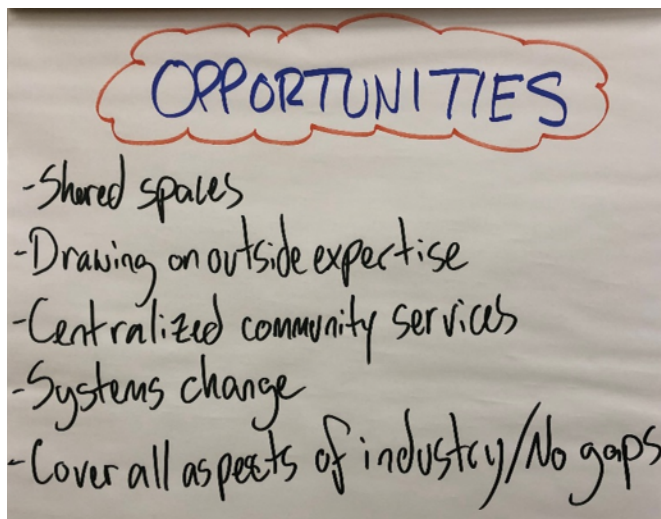 OPPORTUNITIES
-Shared spaces
-Drawing on outside expertise
-Centralized community services
-Systems change
-Cover all aspects of industry/No gaps